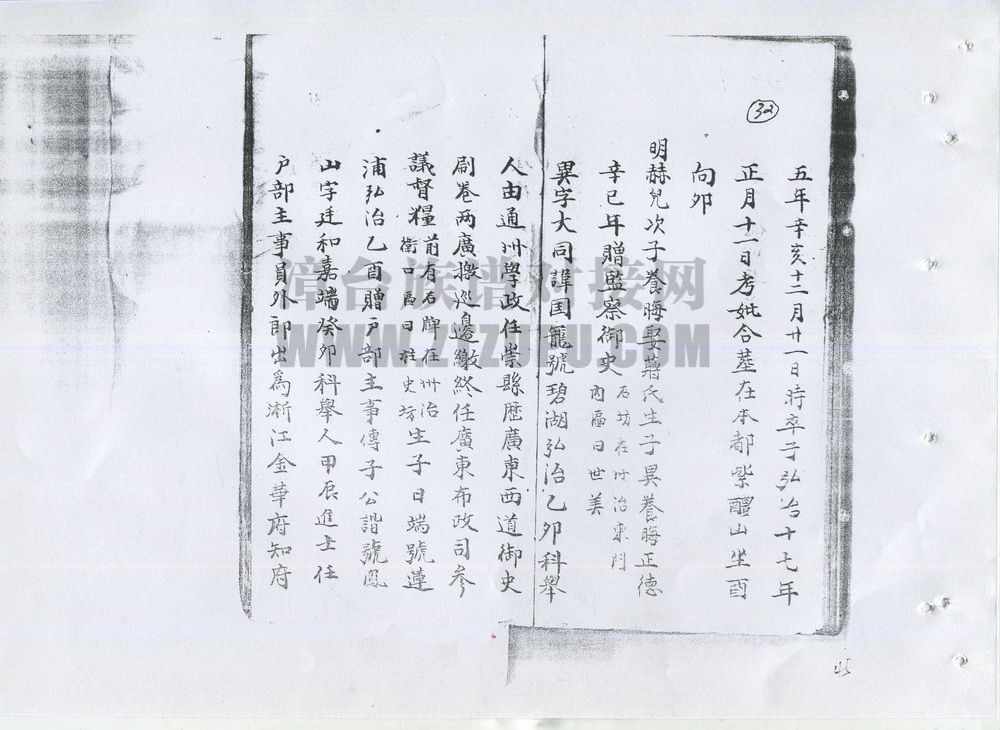 32
五年辛亥十二月廿一日時卒于弘治十七年
正月十一日考妣合塟在本都紫醴山坐酉
向夘
明赫兒次子養晦娶蔣氏生子異養晦正德
辛巳年贈監察御史
石坊在州治東門
內匾曰世美
異字大同諱国籠號碧湖弘治乙夘科舉
人由通州學政任崇縣歴廣東西道御史
刷巻两廣撫巡邉繳終任廣東布政司參
議督糧
前有石牌在州治
衛口匾曰柱史坊
生子曰端號蓮
浦弘治乙酉贈户部主事傳子公諧號鳳
山字廷和嘉端癸夘科舉人甲辰進士任
户部主事員外郎出為浙江金華府知府
45
漳台族谱对接网
WWW.ZTZUPU.COM